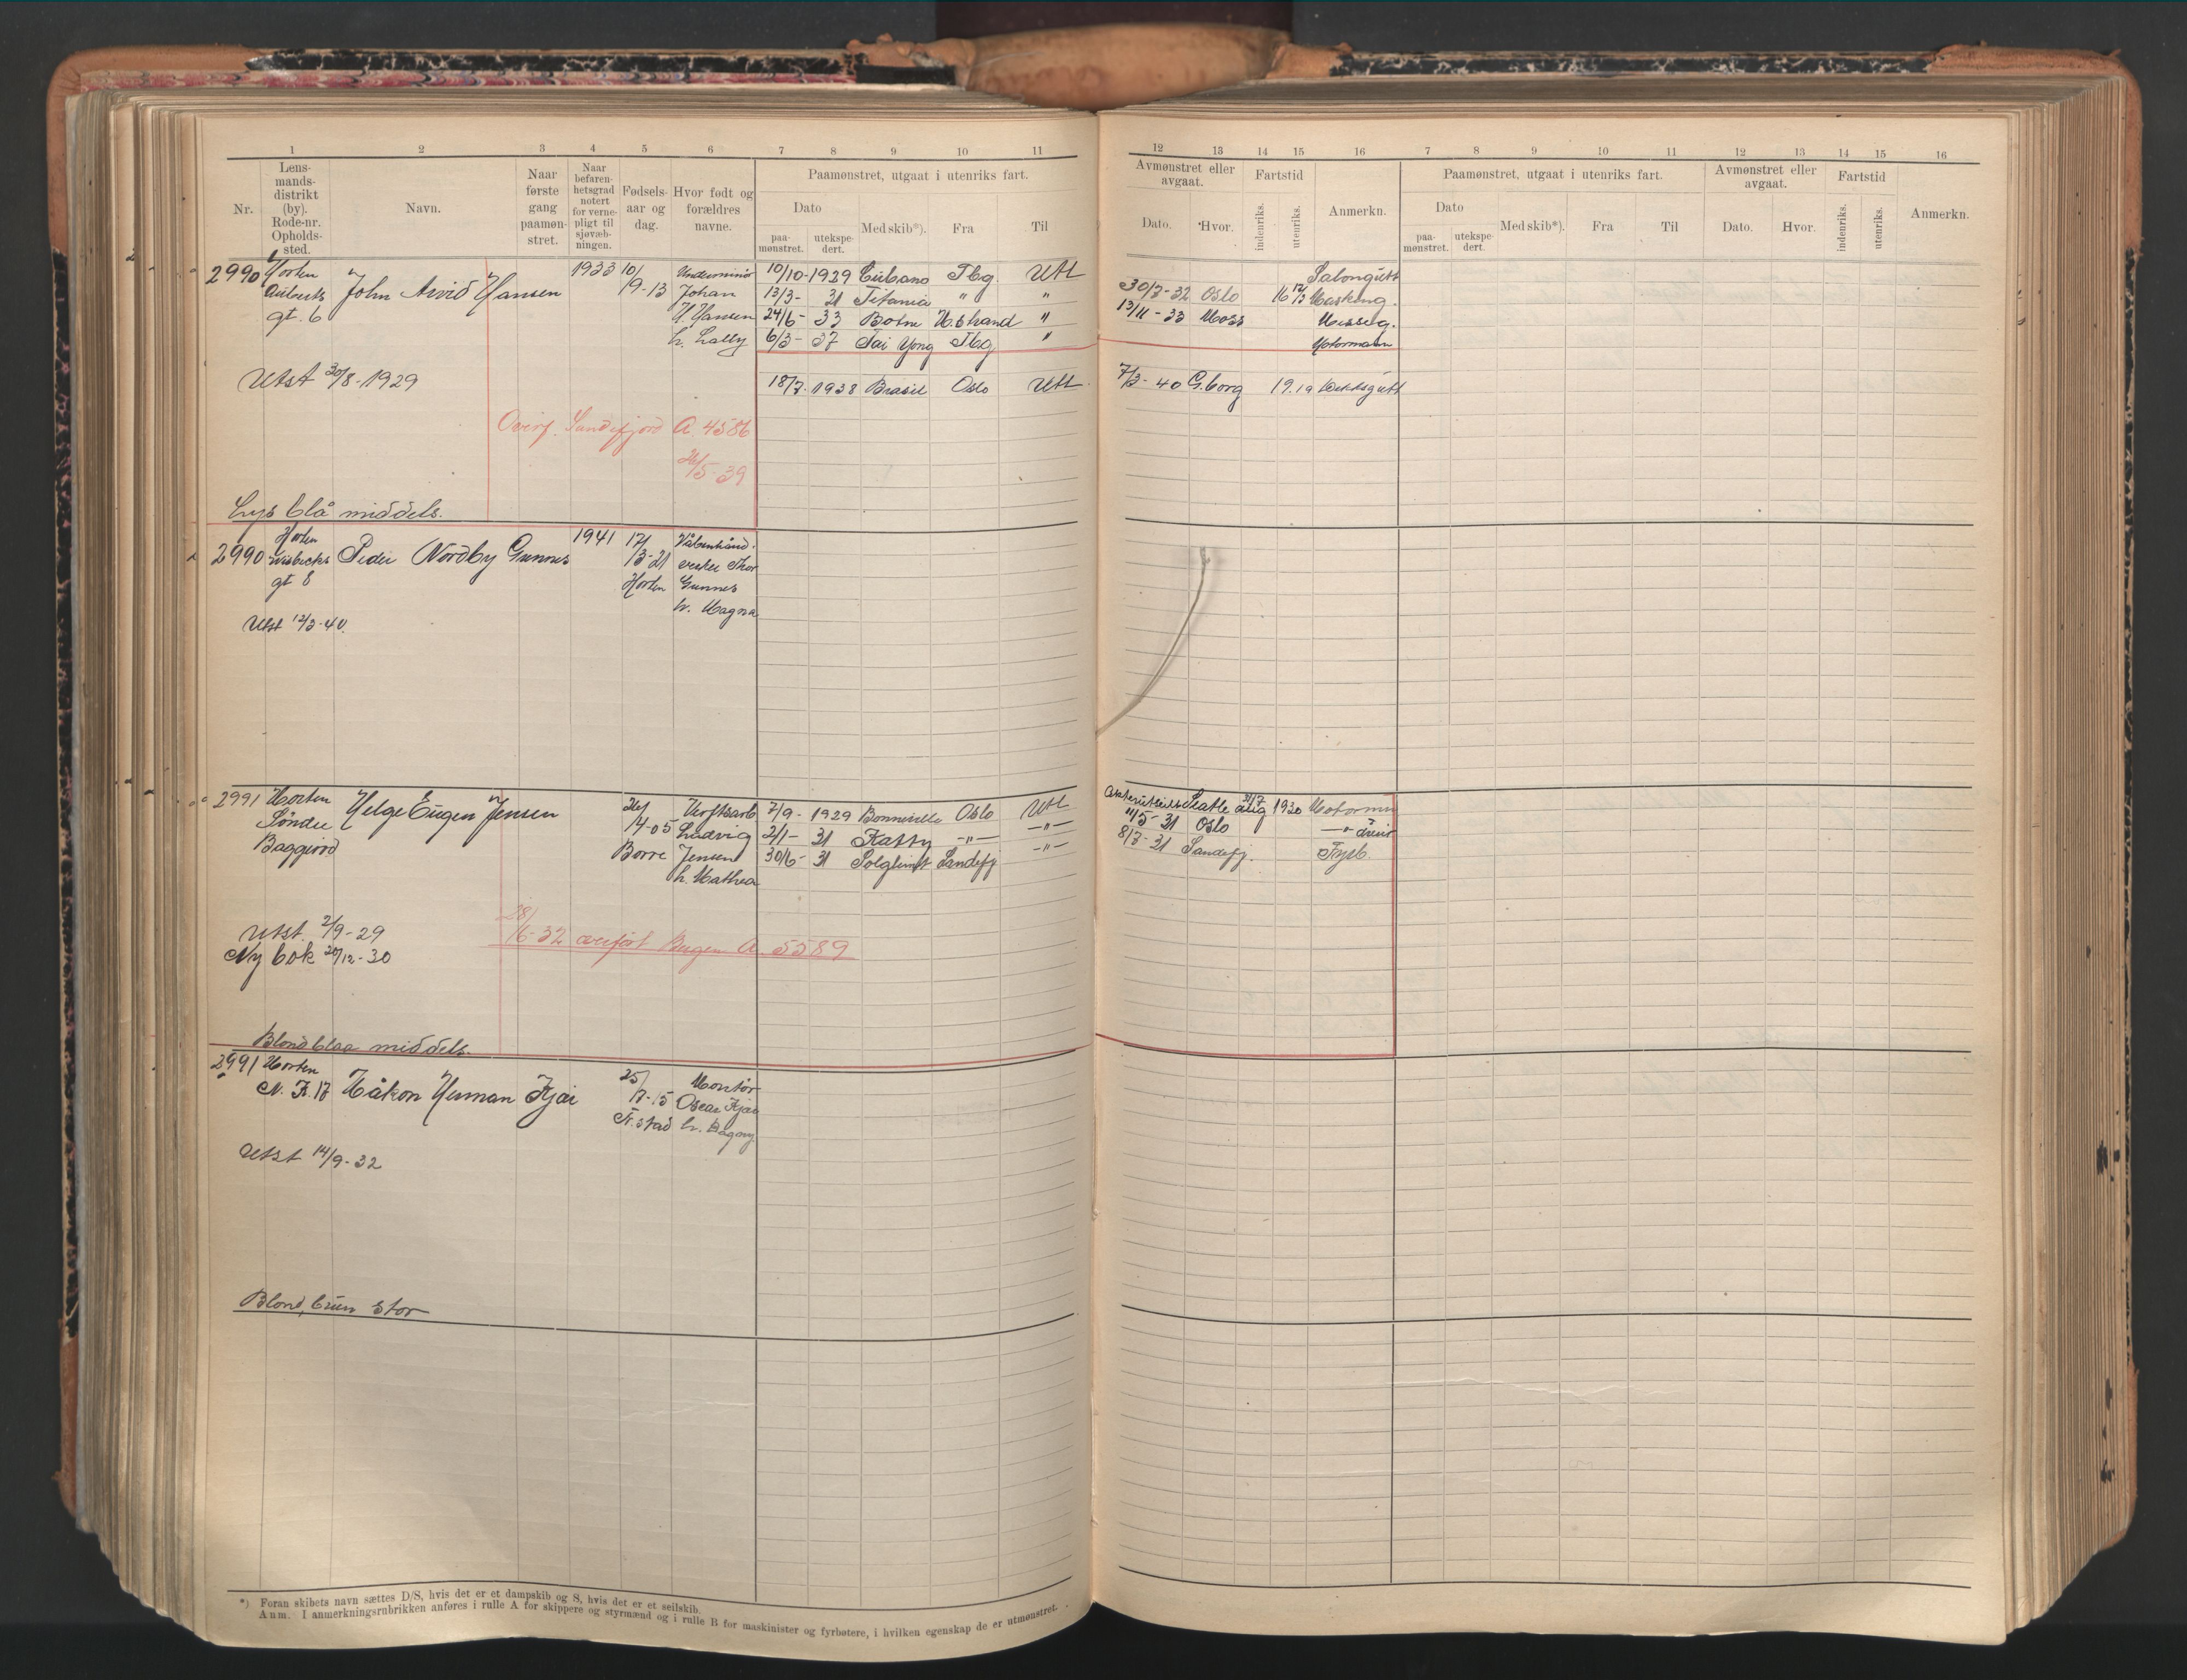 1 2 3 4 5 6 7 8 9 10 11
Nr.
Lens-
mands-
distrikt
(by).
Rode-nr.
Opholds-
sted.
Navn.
Naar
første
gang
paamøn-
stret.
Naar
befaren-
hetsgrad
notert
for verne-
pligt til
sjøvæb-
ningen.
Fødsels-
aar og
dag.
Hvor født og
forældres
navne.
Paamønstret, utgaat i utenriks fart.
Dato
paa-
mønstret.
utekspe-
dert.
Med skib*).
Fra
Til
2990 Horten John Arvid Hansen 1933 10/9-13
gt. 6
Johan
H. Hansen
h. Lally
10/10-1929 Cubano Tbg. Utl
13/3- 31 Titania " "
24/6- 33 Botne H.strand "
6/3- 37 Tai Yong Tbg "
Utst 30/8-1929
18/7-1938 Brasil Oslo Utl
Overf. Sandefjord A. 4586
26/5-39
Lys blå middels.
2990 Horten Peder Nordby Gunnes 1941 17/3-21
gt 8
Horten
Thor
Gunnes
h. Magna
Utst 12/3-40.
2991 Horten Helge Eugen Jensen 26/4-05
Søndre
Baggerød
Borre
Verftsarb
Ludvig
Jensen
h. Mathea
7/9-1929 Bonneville Oslo Utl
2/1- 31 Katty -"- -"-
30/6- 31 Solglimt Sandefj -"-
Utst. 2/9-29
Ny bok 20/12-30
28/6-32 overført Bergen A. 5589
Blond blaa middels.
2991 Horten
N. F. 17 Håkon Herman Kjær 25/7-15
F.stad
Montør
Oscar Kjær
h. Dagny
Utst 14/9-32
Blond, brun stor
*) Foran skibets navn sættes D/S, hvis det er et dampskib og S, hvis det er et seilskib.
Anm. I anmerkningsrubrikken anføres i rulle A for skippere og styrmænd og i rulle B for maskinister og fyrbøtere, i hvilken egenskap de er utmønstret.
12 13 14 15 16 7 8 9 10 11 12 13 14 15 16
Avmønstret eller
avgaat.
Dato.
Hvor.
Fartstid
indenriks.
utenriks.
Anmerkn.
Paamønstret, utgaat i utenriks fart.
Dato
paa-
mønstret.
utekspe-
dert.
Med skib*).
Fra
Til
Avmønstret eller
avgaat.
Dato.
Hvor.
Fartstid
indenriks.
utenriks.
Anmerkn.
Salongutt
30/3-32 Oslo Masking.
13/11-33 Moss Messeg.
Motormann
7/3-40 G.borg 19.19 Dekksgutt
Seatle aug 1930 Motorm
11/5-31 Oslo
8/7-31 Sandefj. Fyrb.